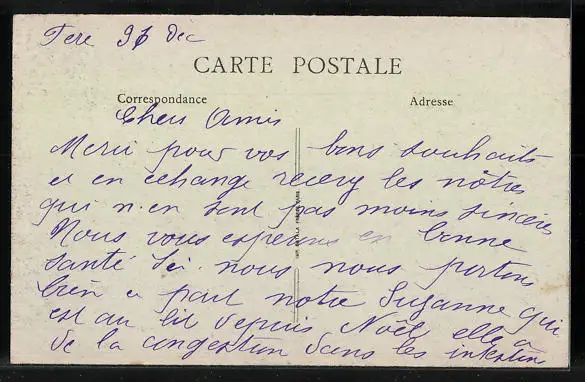 Fere 96 Dèc
CARTE POSTALE
Correspondance
Adresse
Chers Amis
Merci pour vos bons souhaits
et en echange recevez les nôtres
qui n'en sont pas moins sincères
Nous vous esperons en bonne
santé ici nous nous portons
bien a part notre Suzanne qui
est au lit depuis Noël elle a
de la congestion dans les intestins